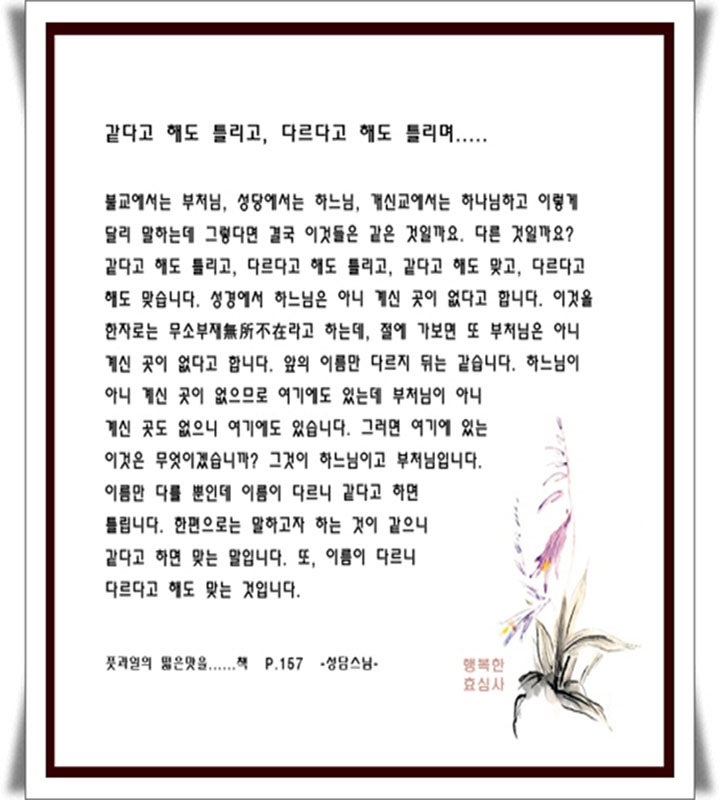 같다고 해도 틀리고, 다르다고 해도 틀리며.....
불교에서는 부처님, 성당에서는 하느님, 개신교에서는 하나님하고 이렇게
달리 말하는데 그렇다면 결국 이것들은 같은 것일까요. 다른 것일까요?
같다고 해도 틀리고, 다르다고 해도 틀리고, 같다고 해도 맞고, 다르다고
해도 맞습니다. 성경에서 하느님은 아니 계신 곳이 없다고 합니다. 이것을
한자로는 무소부재無所不在라고 하는데, 절에 가보면 또 부처님은 아니
계신 곳이 없다고 합니다. 앞의 이름만 다르지 뒤는 같습니다. 하느님이
아니 계신 곳이 없으므로 여기에도 있는데 부처님이 아니
계신 곳도 없으니 여기에도 있습니다. 그러면 여기에 있는
이것은 무엇이겠습니까? 그것이 하느님이고 부처님입니다.
이름만 다를 뿐인데 이름이 다르니 같다고 하면
틀립니다. 한편으로는 말하고자 하는 것이 같으니
같다고 하면 맞는 말입니다. 또, 이름이 다르니
다르다고 해도 맞는 것입니다.
풋과일의 떫은맛을......책 P.157 -성담스님-
행복한
효심사